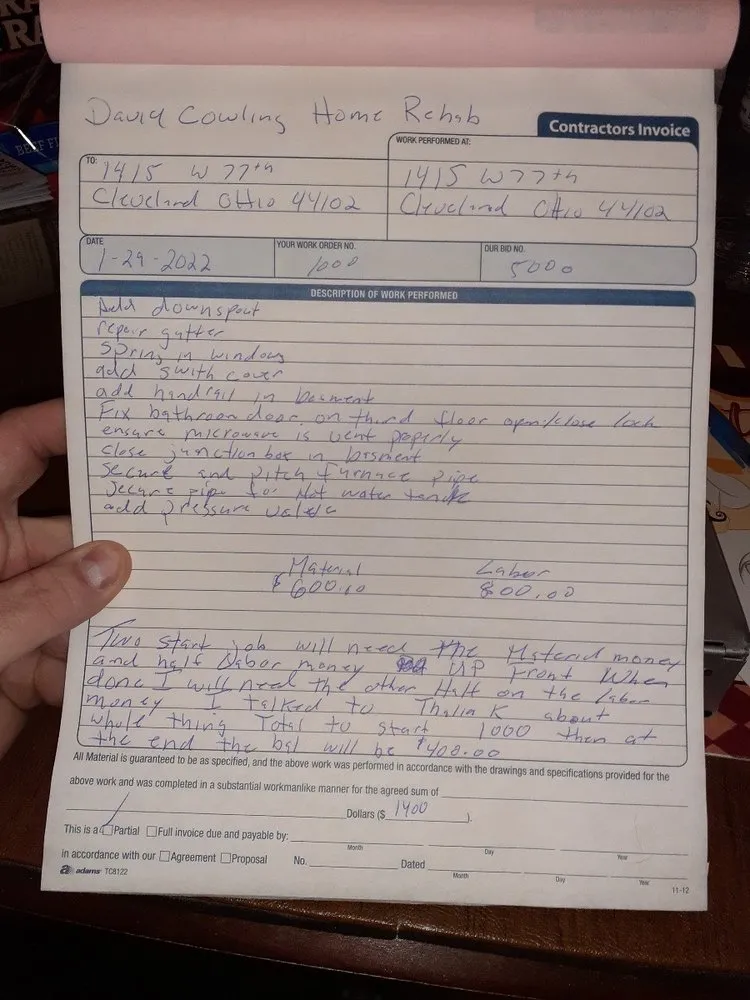 David Cowling Home Rehab
Contractors Invoice
TO:
1415 W 77th
Cleveland Ohio 44102
WORK PERFORMED AT:
1415 W 77th
Cleveland Ohio 44102
DATE
1-29-2022
YOUR WORK ORDER NO.
1000
OUR BID NO.
5000
DESCRIPTION OF WORK PERFORMED
Add downspout
repair gutter
Spring in windows
add swith cover
add handrail in basment
Fix bathroom door on third floor open/close lock
ensure microwave is vent properly
close junction box in basment
secure and pitch furnace pipe
secure pipe for Hot water tank
add pressure
Material Labor
$600.00 800.00
Two start job will need the Material money
and half Labor money UP Front When
done I will need the other Half on the labor
money I talked to Thalia K about
whole thing Total to start 1000 then at
the end the bal will be $400.00
All Material is guaranteed to be as specified, and the above work was performed in accordance with the drawings and specifications provided for the
above work and was completed in a substantial workmanlike manner for the agreed sum of
Dollars ($ 1400 ).
This is a Partial Full invoice due and payable by:
Month Day Year
in accordance with our Agreement Proposal No. Dated
Month Day Year
adams TC8122
11-12